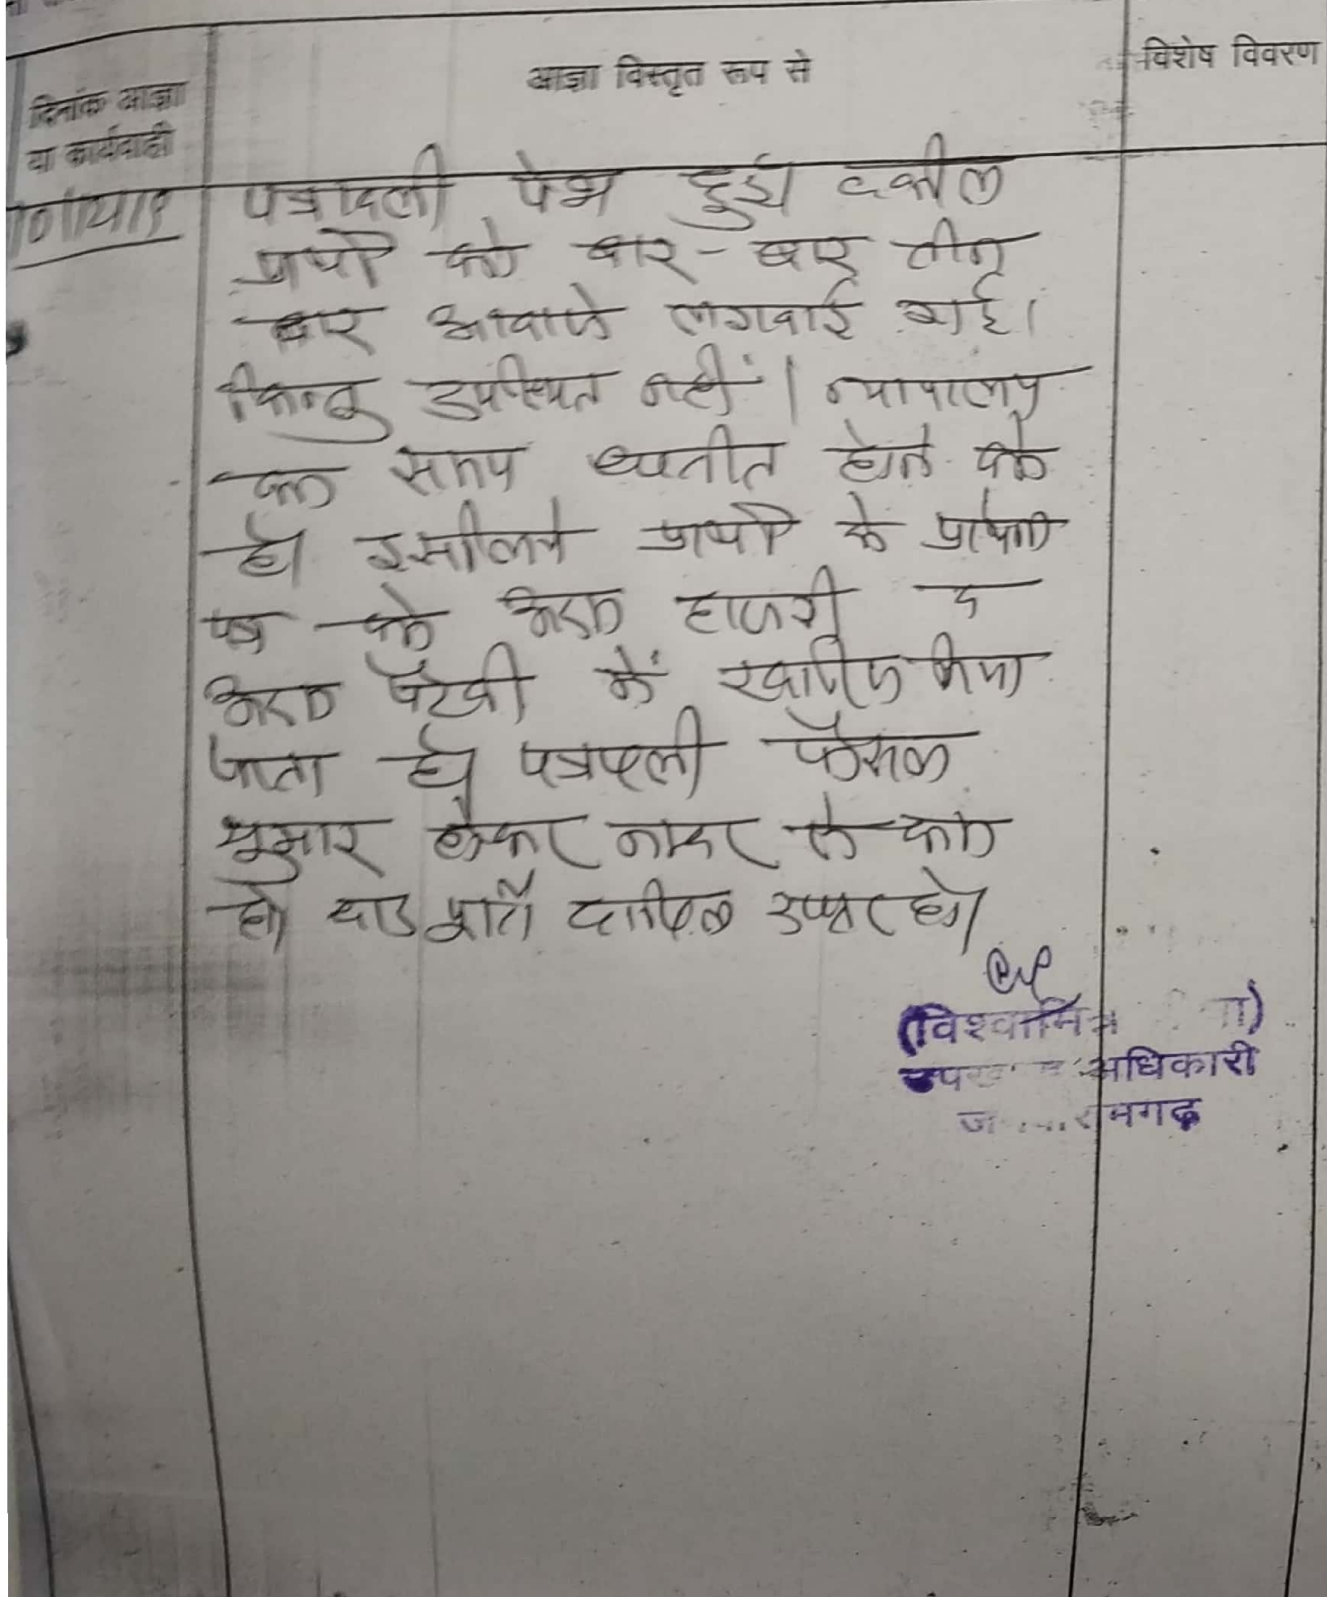 आज्ञा विस्तृत रूप से
विशेष विवरण
दिनांक आज्ञा
या कार्यवाही
पत्रावली पेश हुई। वकील
प्रार्थी को बार-बार तीन
बार आवाजे लगवाई गई।
किन्तु उपस्थित नहीं। न्यायालय
का समय व्यतीत होने को
है। इसलिये प्रार्थी के प्रार्थना
पत्र को अदम हाजरी व
अदम पैरवी में खारिज किया
जाता है। पत्रावली फैसल
शुमार होकर नम्बर से कम
हो। बाद पूर्ति दाखिल दफ्तर हो।
(विश्वामित्र
अधिकारी